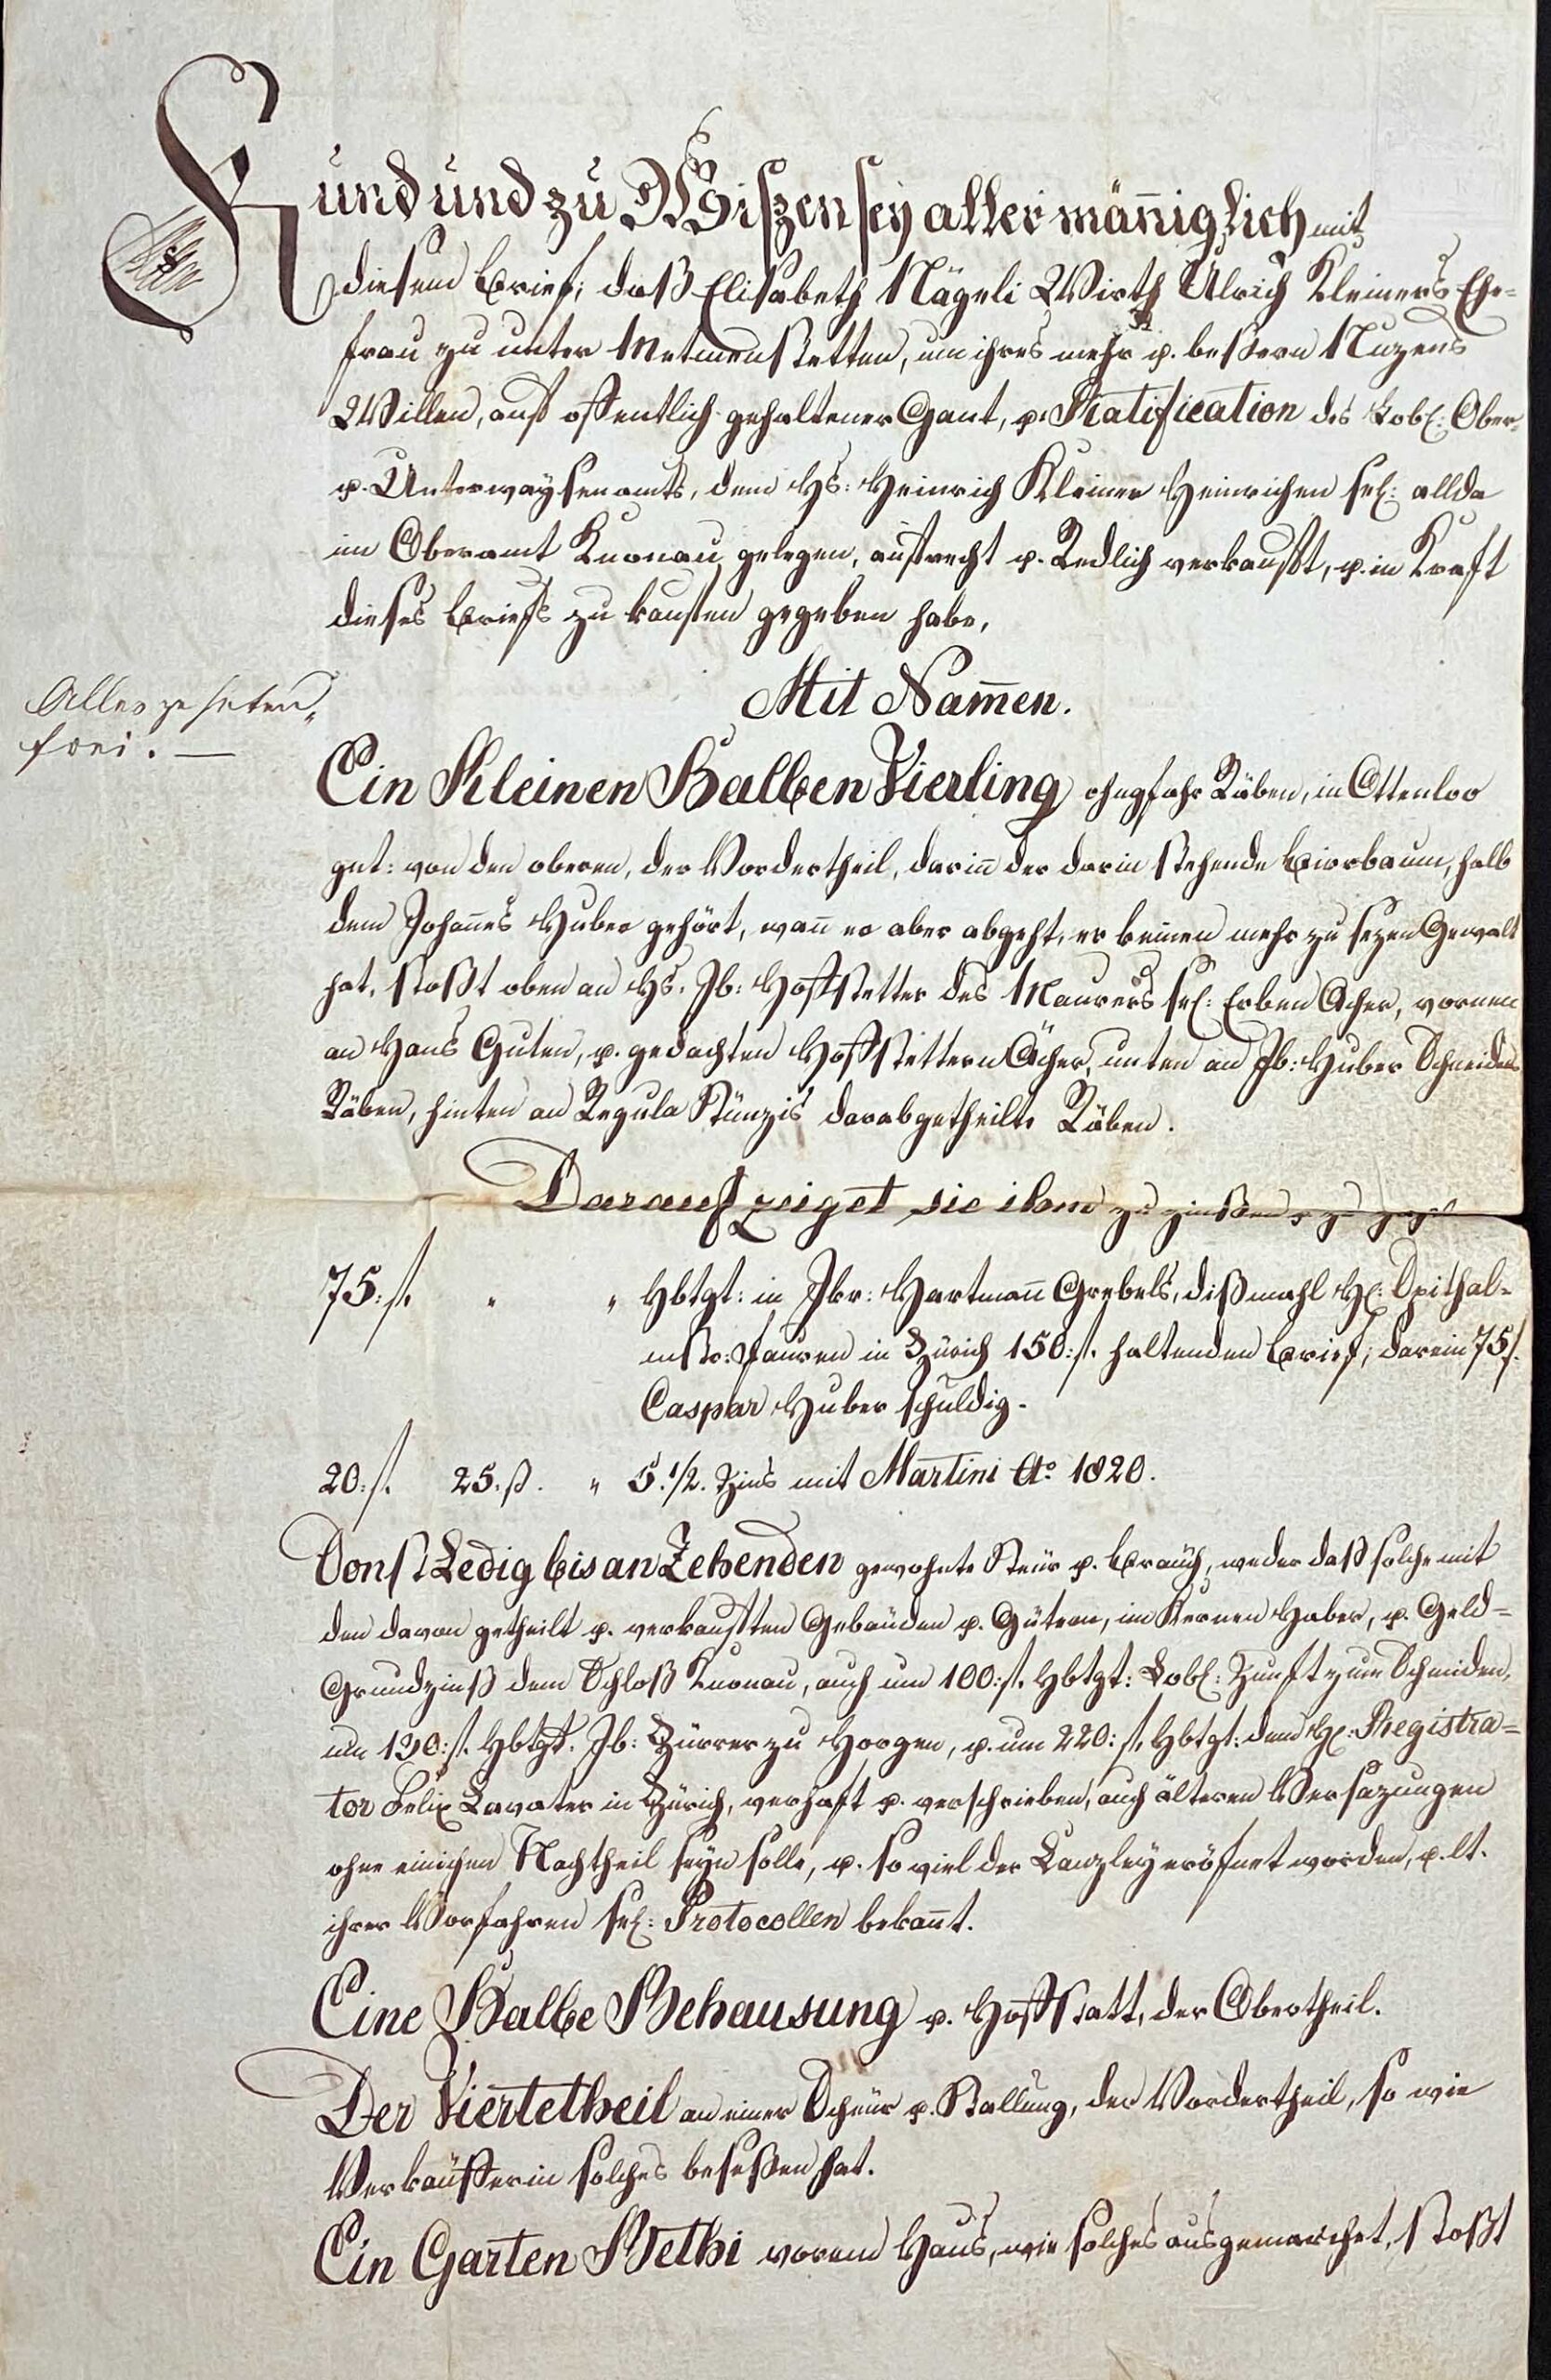 Kund und zu Wiszen sey aller männiglich mit
diesem Brief, daß Elisabeth Nägeli Wirth Ulrich Kleiners Ehe-
frau zu unter Metmenstetten, um ihres mehr u. beßern Nuzens
Willen, auf offentlich gehaltener Gant, u. Ratification des Lobl: Ober-
u. Unterwaysenamts, dem Hs: Heinrich Kleiner Heinrichen sel: allda
im Oberamt Knonau gelegen, aufrecht u. Redlich verkauft, u. in Kraft
dieses Briefs zu kaufen gegeben habe,
Mit Nam̄en.
Alles zehnten
frei. —
Ein Kleinen Halben Vierling ohngfahr Räben, in Ottenloo
gut: von den oberen, der Vordertheil, darin̄ der darin stehende Birrbaum, halb
dem Johan̄es Huber gehört, wan̄ er aber abgeht, er keinen mehr zu sezen Gewalt
hat, stoßt oben an Hs. Jb: Hoffstetter des Maurers sel: Erben Acher, vornen
an Hans Guten, u. gedachten Hoffstettern Acher, unten an Jb: Huber Schneiders
Räben, hinten an Regula Künzis darabgetheilte Räben.
Darauf zeiget sie ihm zu zinßen u. zu
75: fl. " " Hbtgt: in Jkr: Hartman̄ Grebels, dißmahl H: Spithal-
mstr: in Zürich 150: fl. haltenden Brief, darein 75 fl.
Caspar Huber schuldig.
20: fl. 25: ß. " 5. 1/2. Zins mit Martini Aº 1820.
Sonst Ledig bis an Zehenden gewohnte Steür u. Bräuch, weder daß solche mit
den davon getheilt u. verkauften Gebäuden u. Gütern, im Kernen Haber, u. Geld-
Grundzinß dem Schloß Knonau, auch um 100: fl. Hbtgt: Lobl: Zunft zum Schmiden,
um 190: fl. Hbtgt. Jb: Zürrer zu Horgen, u. um 220: fl. Hbtgt: dem H: Registra-
tor Felix Lavater in Zürich, verhaft u. verschrieben, auch älteren Versazungen
ohne einichen Nachtheil seyn solle, u. so viel der Canzley eröfnet worden, u. lt.
ihrer Vorfahren sel: Protocollen bekan̄t.
Eine Halbe Behausung u. Hoffstatt, der Obertheil.
Der Viertetheil an einer Scheür u. Stallung, der Vordertheil, so wie
Verkäufferin solches beseßen hat.
Ein Garten Bethi vorem Haus, wie solches ausgemarchet, stoßt